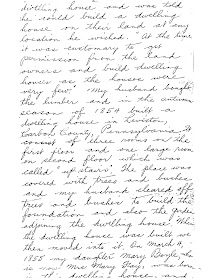 dwelling house and was told
he could build a dwelling
house on their land at any
location he wished. At the time
it was customary to get
permission from the land
owners and build dwelling
houses as the houses were
very few. My husband bought
the lumber and in the autumn
season of 1854 built our
dwelling house in Leviston,
Carbon County, Pennsylvania. It
consist of three rooms on the
first floor and one large room
on second floor which was
called "up stairs". The place was
covered with trees and bushes
and my husband cleared off
trees and bushes to build the
foundation and also the garden
adjoining the dwelling house. When
the dwelling house was built we
then moved into it. On March 4,
1855 my daughter Mary Boyle, who
is now Mrs. Mary Gray, was born
in the dwelling house, and